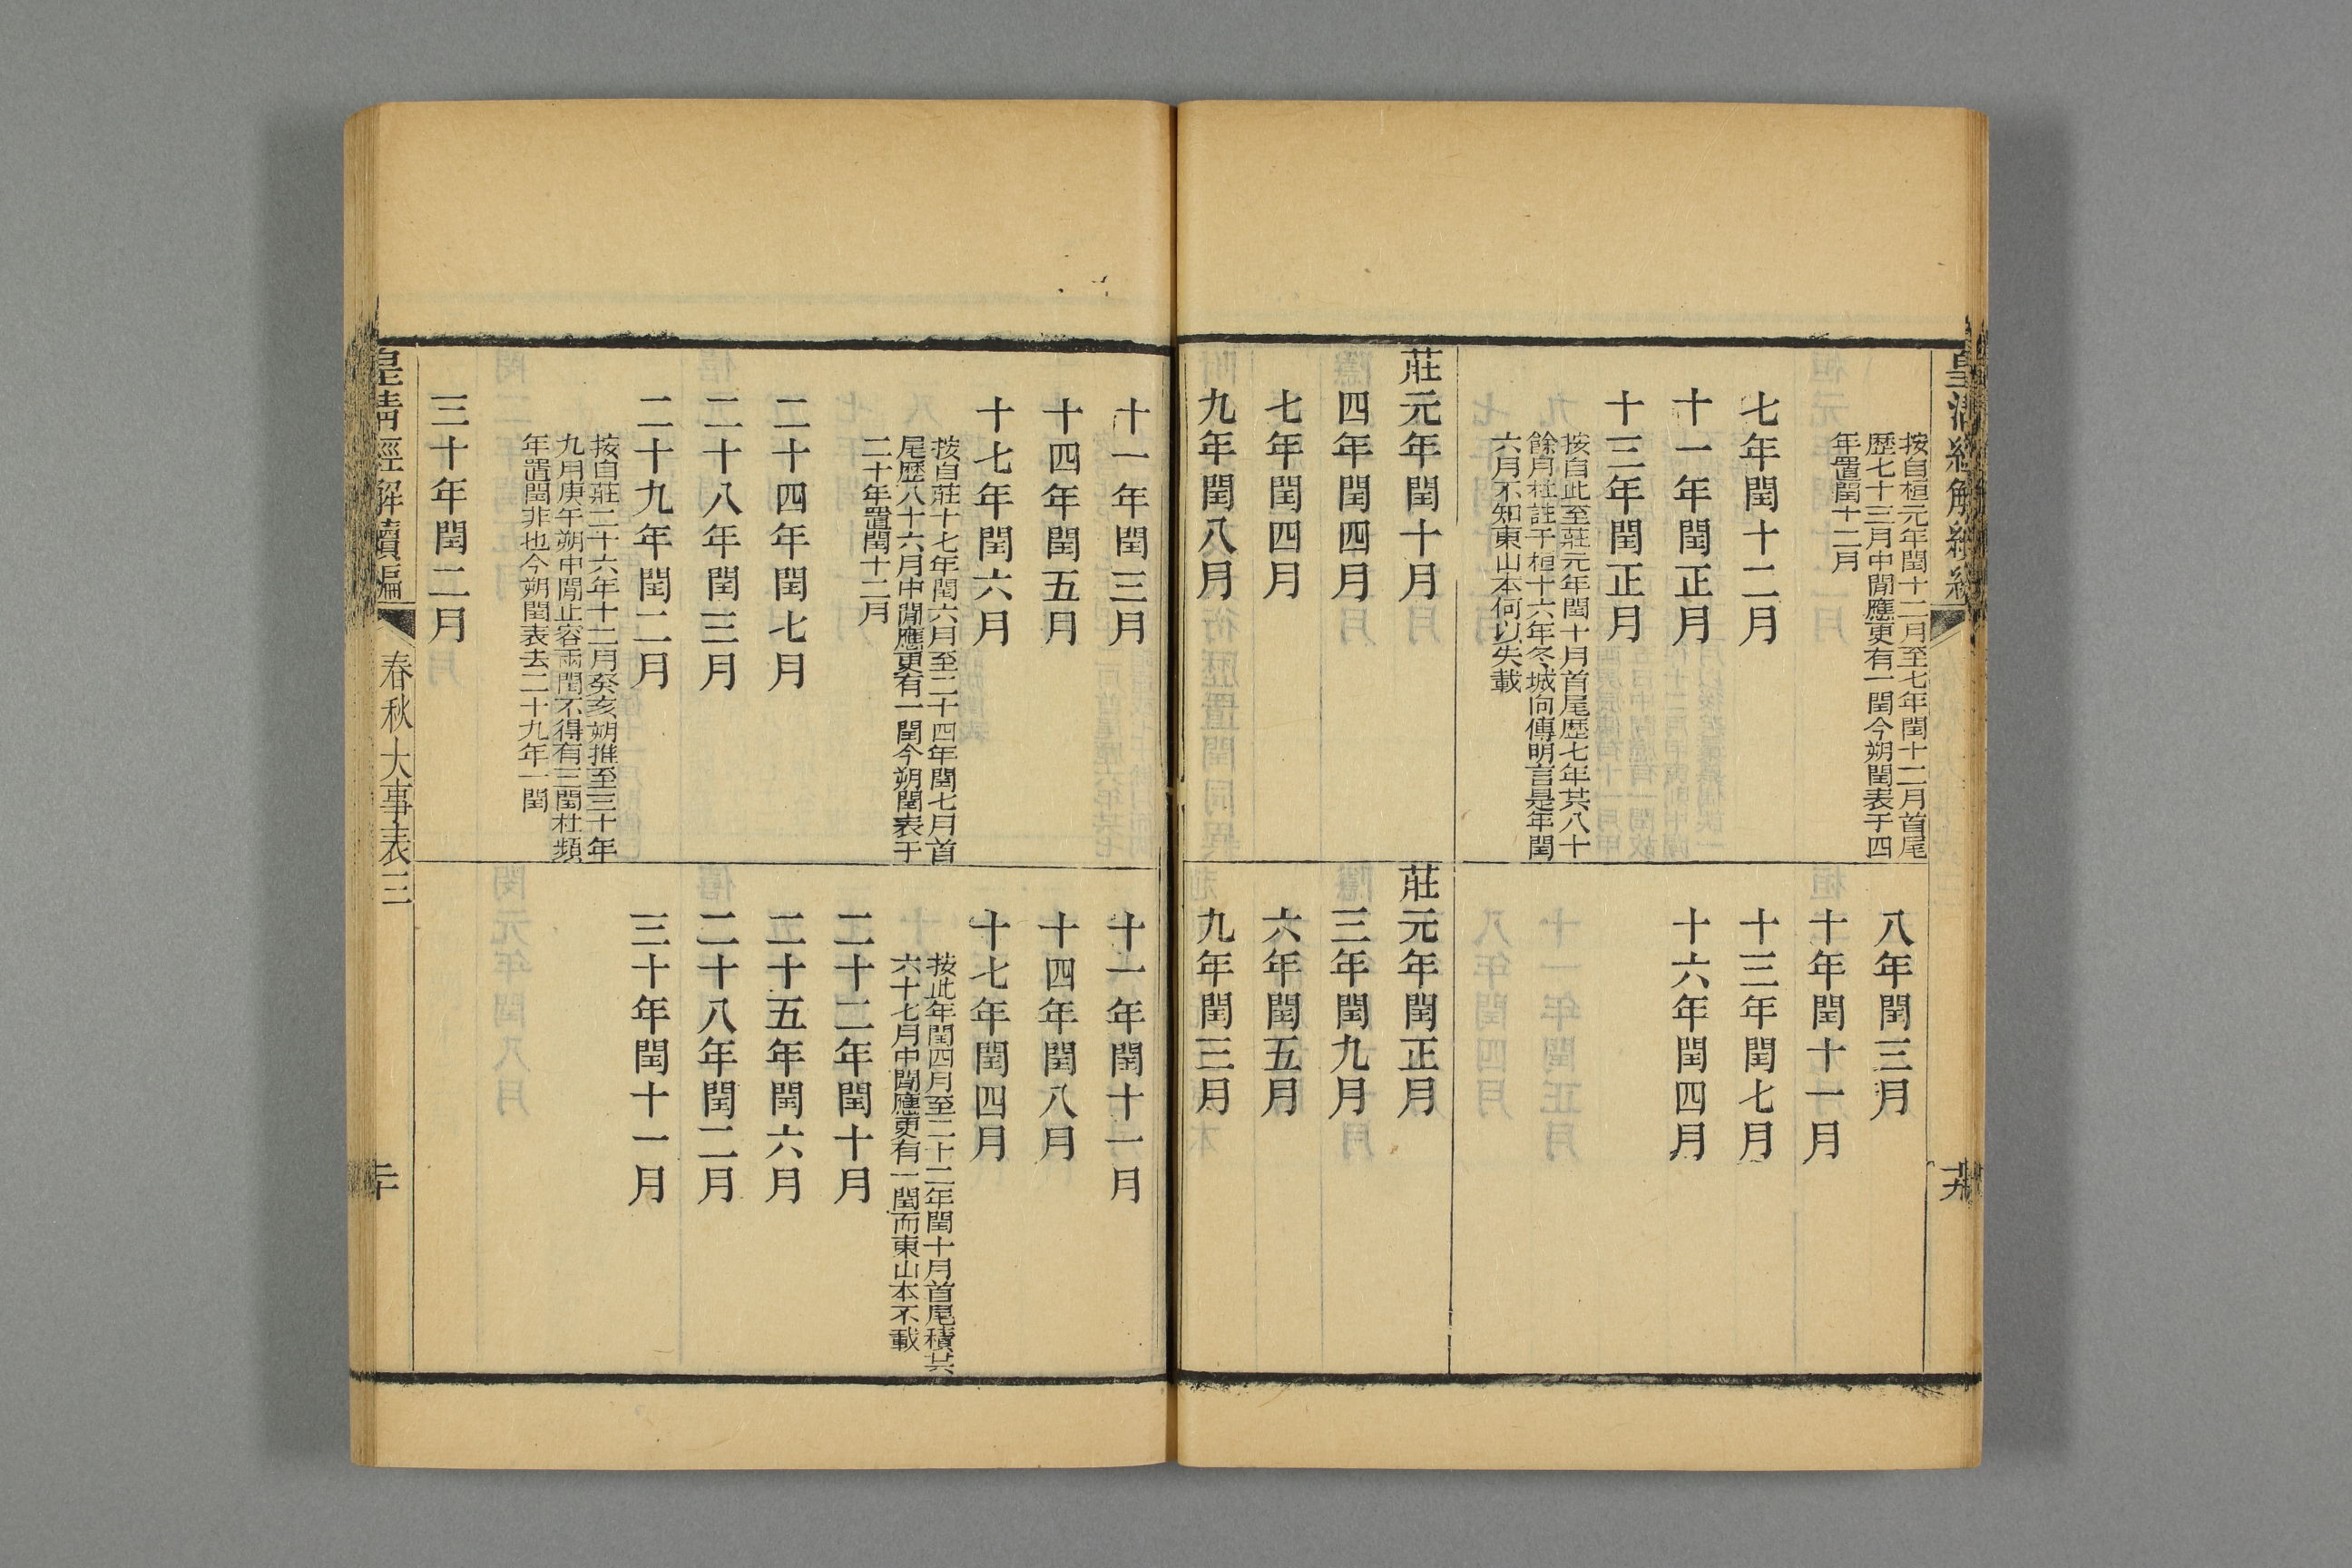 皇清經解續編
按自桓元年閏十二月至七年閏十二月首尾
歷七十三月中閒應更有一閏今朔閏表于四
年置閏十二月
七年閏十二月
十一年閏正月
十三年閏正月
按自此至莊元年閏十月首尾歷七年共八十
餘月杜註于桓十六年冬城向傳明言是年閏
六月不知東山本何以失載
莊元年閏十月
四年閏四月
七年閏四月
九年閏八月
八年閏三月
十年閏十一月
十三年閏七月
十六年閏四月
莊元年閏正月
三年閏九月
六年閏五月
九年閏三月
十一年閏三月
十四年閏五月
十七年閏六月
按自莊十七年閏六月至二十四年閏七月首
尾歷八十六月中閒應更有一閏今朔閏表于
二十年置閏十二月
二十四年閏七月
二十八年閏三月
二十九年閏二月
按自莊二十六年十二月癸亥朔推至三十年
九月庚午朔中閒止容兩閏不得有三閏杜頻
年置閏非也今朔閏表去二十九年一閏
三十年閏二月
十一年閏十一月
十四年閏八月
十七年閏四月
按此年閏四月至二十二年閏十月首尾積共
六十七月中閒應更有一閏而東山本不載
二十二年閏十月
二十五年閏六月
二十八年閏二月
三十年閏十一月
皇清經解續編
春秋大事表三